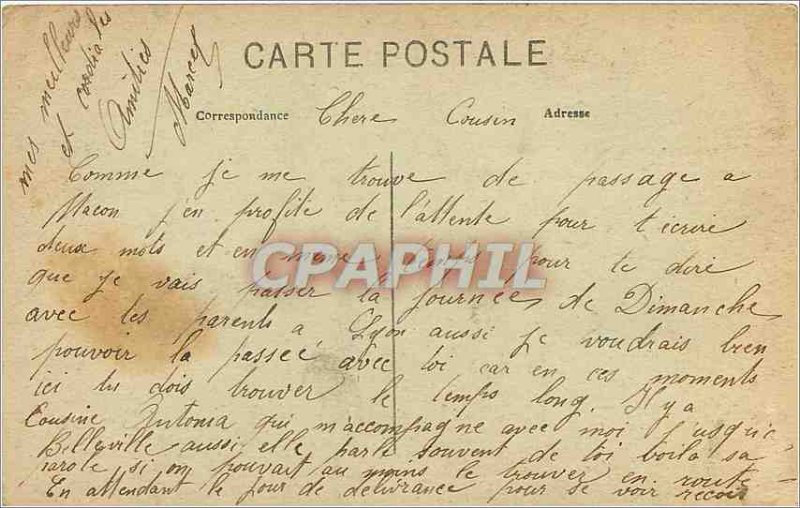 CARTE POSTALE
Correspondance Chere Cousin Adresse
Comme je me trouve de passage a
Macon j'en profite de l'attente pour t'ecrire
deux mots et en meme temps pour te dire
que je vais passer la journeé de Dimanche
avec tes parents a Lyon aussi je voudrais bien
pouvoir la passeé avec toi car en ces moments
ici tu dois trouver le temps long. Il y a
Cousine Antonia qui m'accompagne avec moi j'usqu'a
Belleville aussi elle parle souvent de toi voila sa
parole si on pouvait au moins le trouver en route
En attendant le jour de delivrance pour se voir
mes meilleurs
et cordiales
Amitiés
Marcel
CPAPHIL